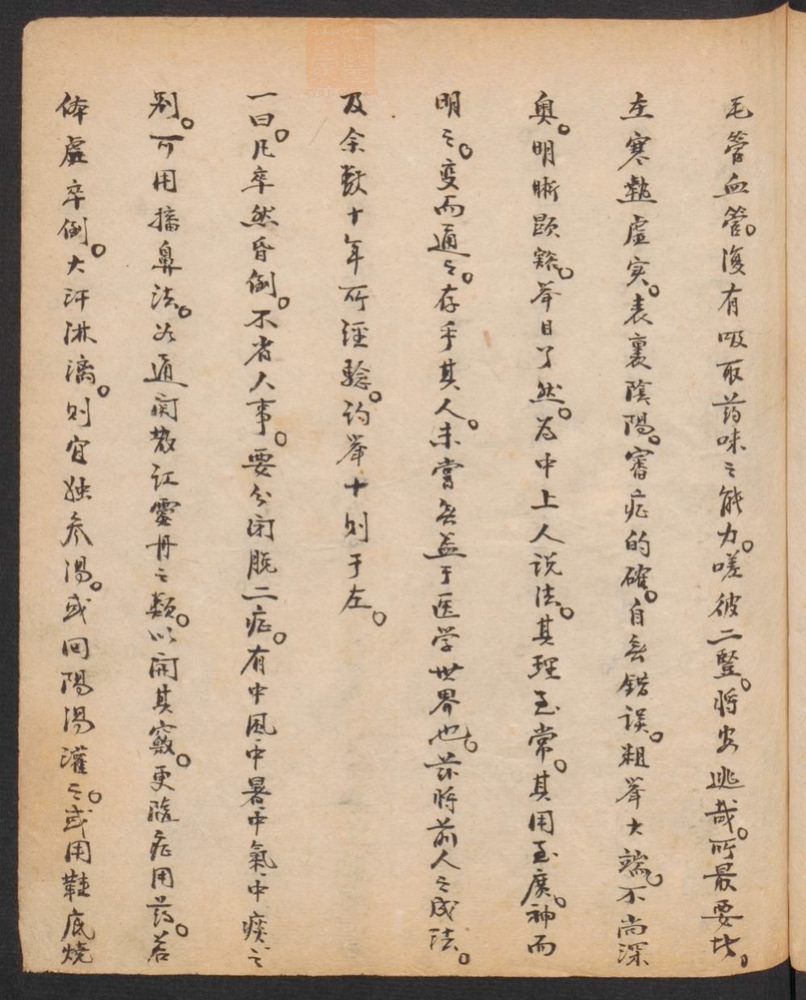 毛管血管。復有吸取药味之能力。嗟彼二豎。將安逃哉。所最要者。
在寒熱虛实。表裏陰陽。審症的確。自無錯误。粗举大端。不尚深
奥。明晰顕豁。举目了然。为中上人说法。其理至常。其用至廣。神而
明之。变而通之。存乎其人。未嘗無益于医学世界也。茲將前人之成法。
及余数十年所经驗。约举十则于左。
一曰。凡卒然昏倒。不省人事。要分闭脱二症。有中風中暑中氣中痰之
别。可用搐鼻法。以通関散红靈丹之類。以開其竅。更隨症用药。若
体虛卒倒。大汗淋漓。则宜独参湯。或回陽湯灌之。或用鞋底燒